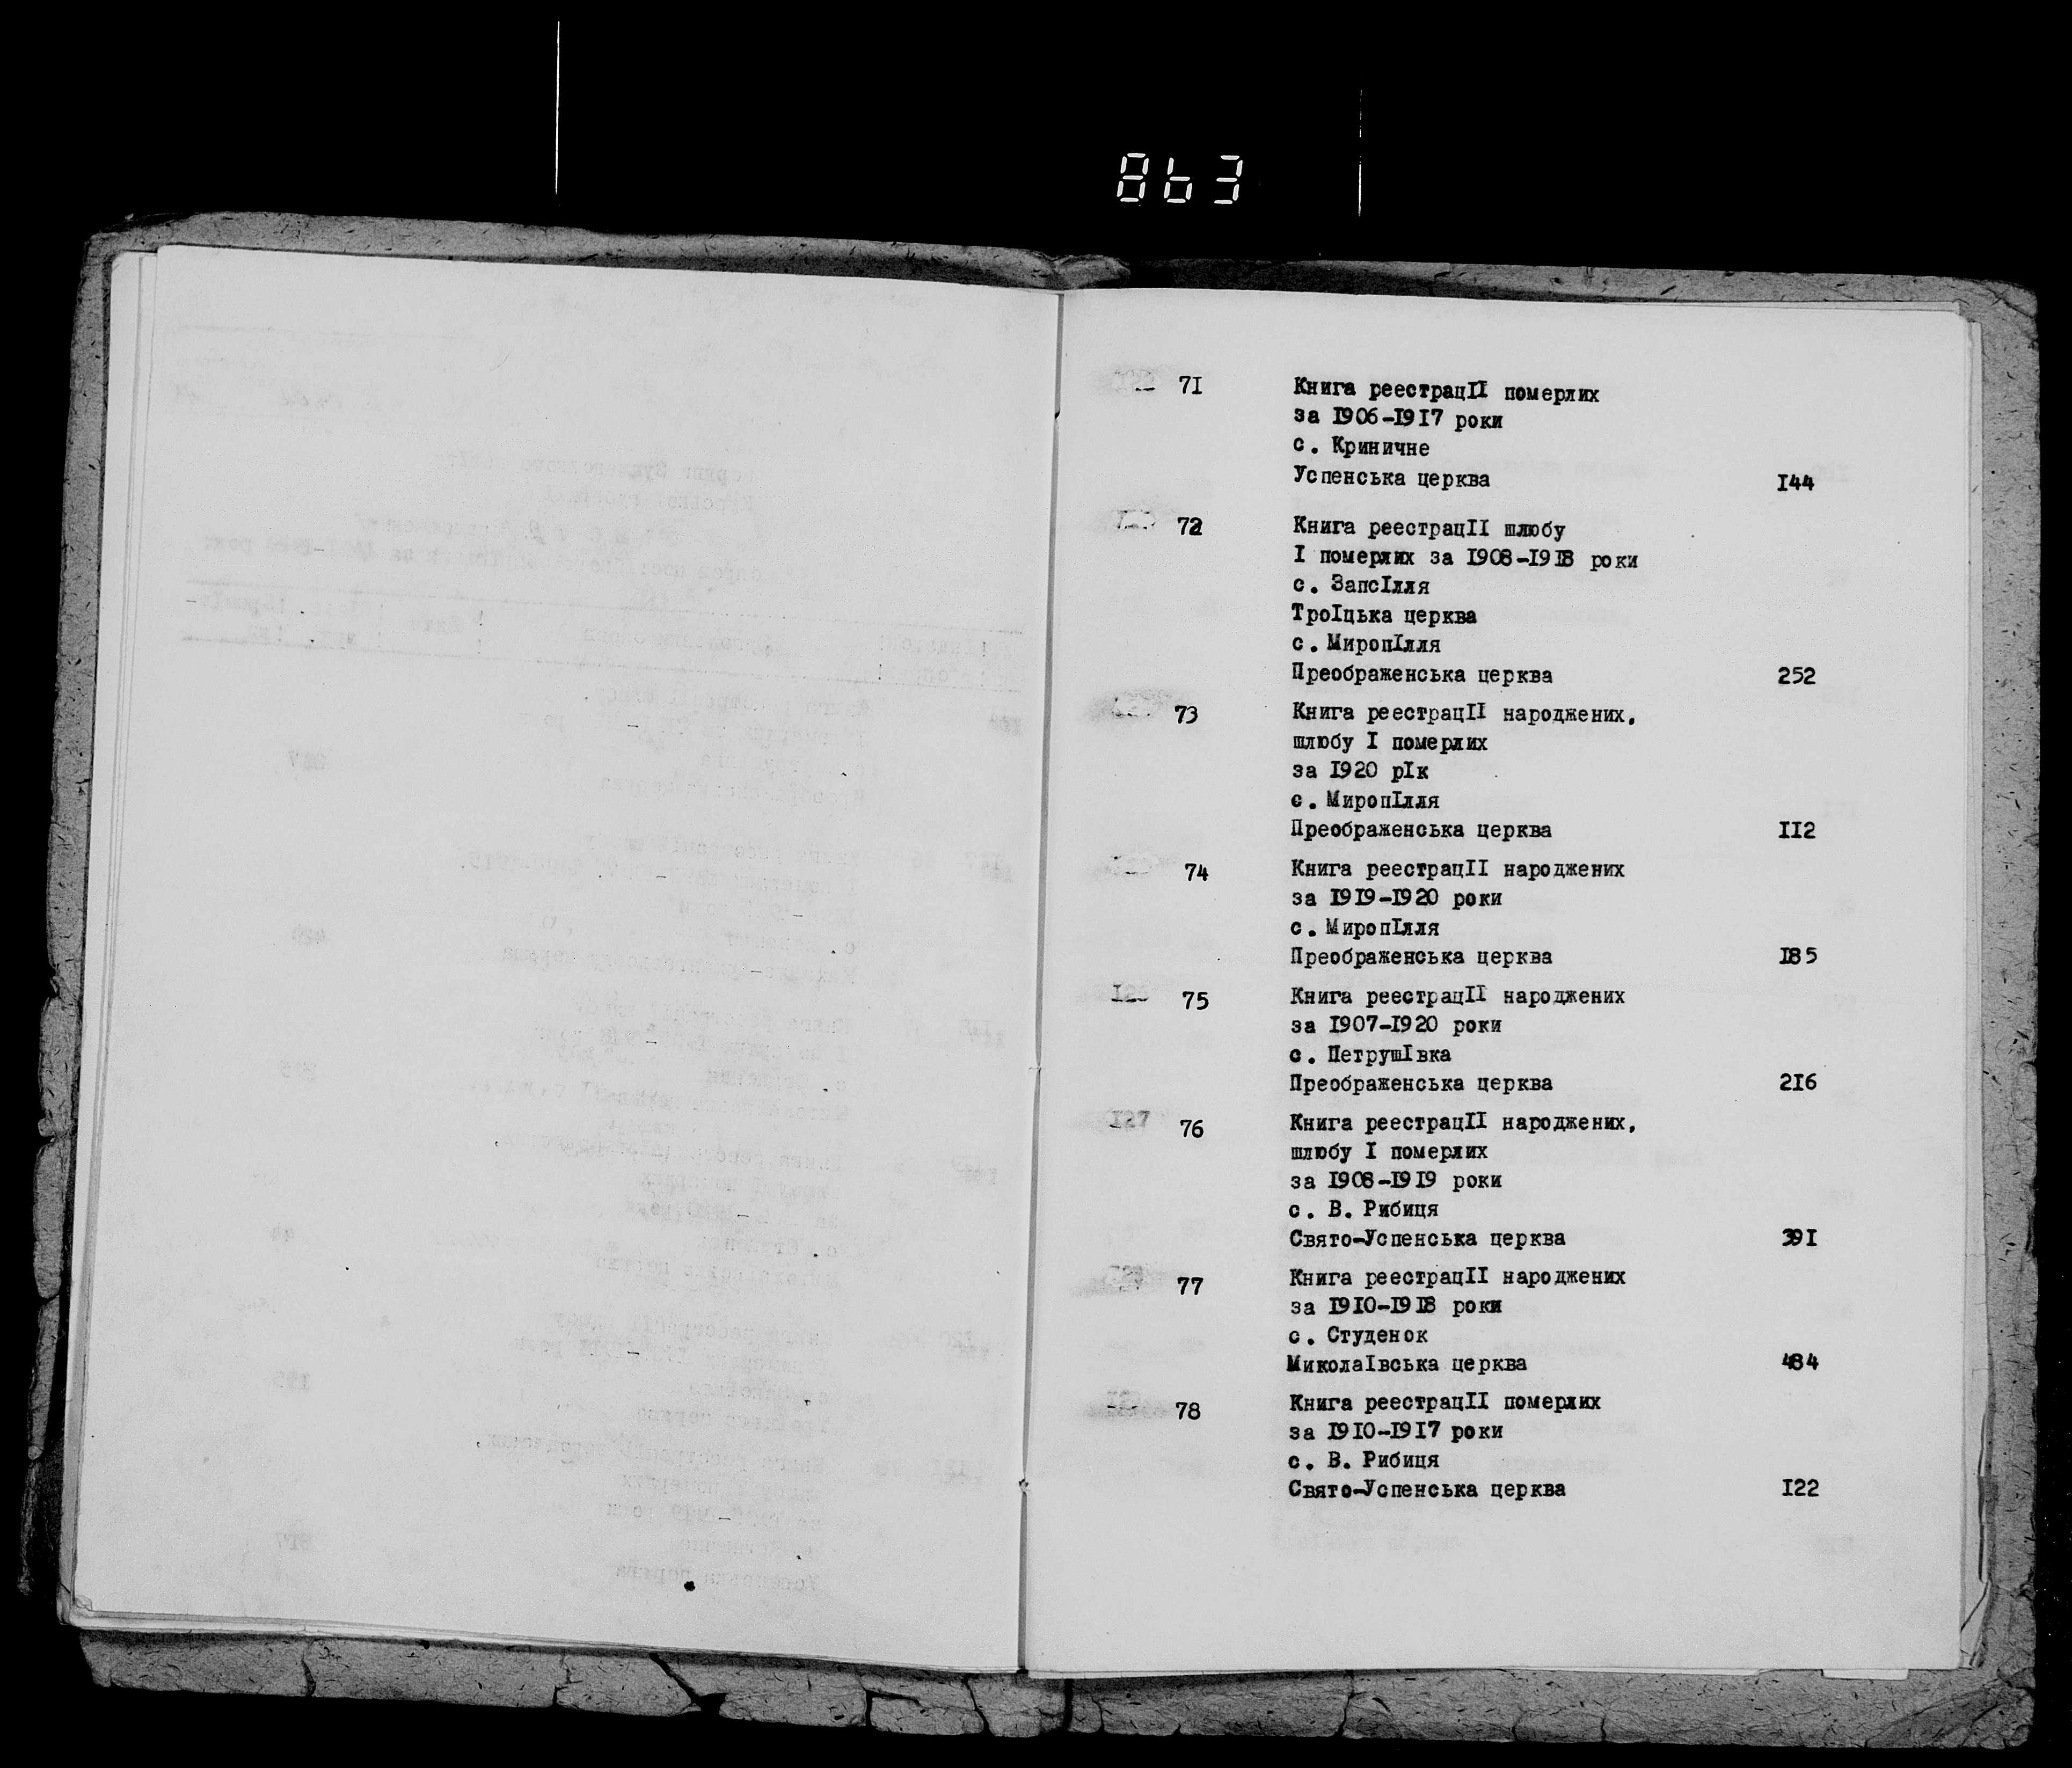 863
71 Книга реестрацІІ померлих
за 1906-1917 роки
с. Криничне
Успенська церква 144
72 Книга реестрацІІ шлюбу
І померлих за 1908-1918 роки
с. ЗапсІлля
ТроІцька церква
с. МиропІлля
Преображенська церква 252
73 Книга реестрацІІ народжених,
шлюбу І померлих
за 1920 рІк
с. МиропІлля
Преображенська церква 112
74 Книга реестрацІІ народжених
за 1919-1920 роки
с. МиропІлля
Преображенська церква 185
75 Книга реестрацІІ народжених
за 1907-1920 роки
с. ПетрушІвка
Преображенська церква 216
127 76 Книга реестрацІІ народжених,
шлюбу І померлих
за 1908-1919 роки
с. В. Рибиця
Свято-Успенська церква 391
77 Книга реестрацІІ народжених
за 1910-1918 роки
с. Студенок
МиколаІвська церква 484
78 Книга реестрацІІ померлих
за 1910-1917 роки
с. В. Рибиця
Свято-Успенська церква 122